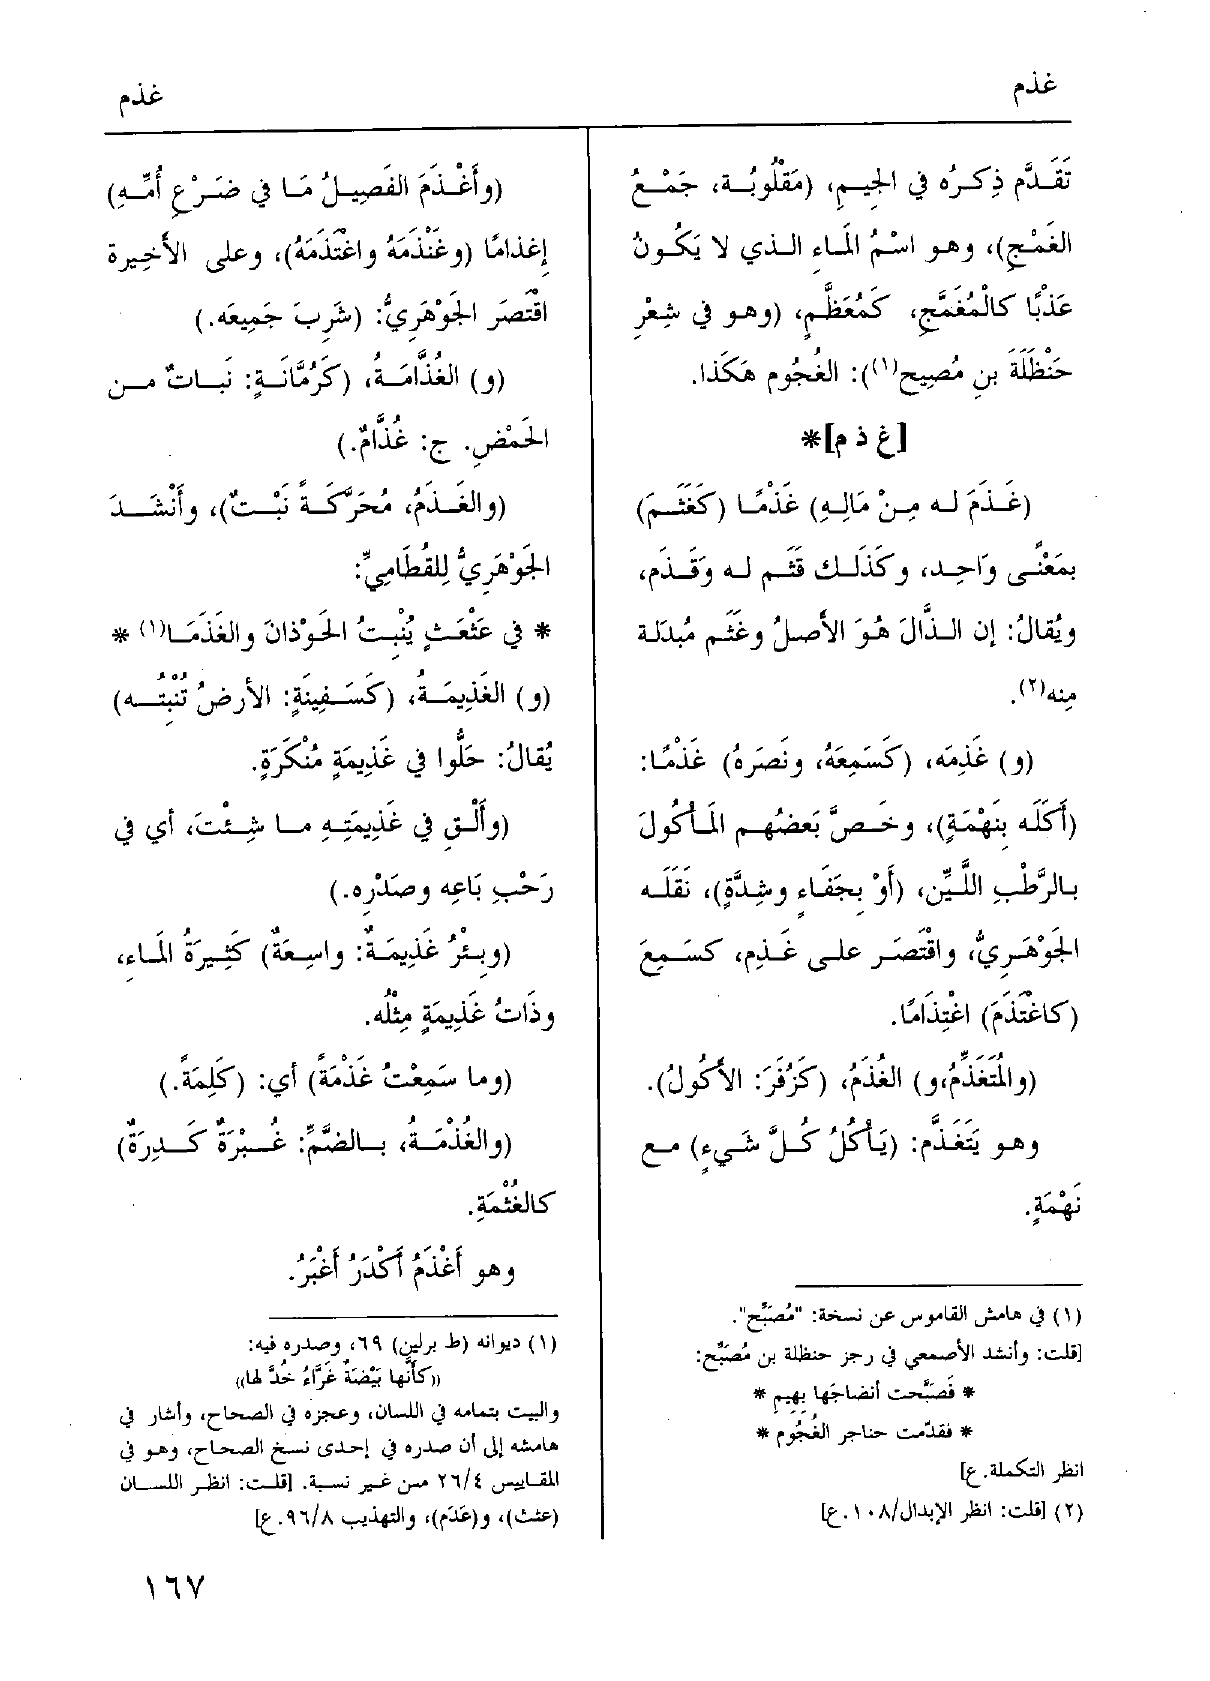 غذم
غذم
تَقَدَّم ذِكرُه في الجِيمِ، (مَقْلُوبُة، جَمْعُ
الغَمْجِ)، وهو اسْمُ الْماءِ الذي لا يَكُونُ
عَذْبًا كالْمُغَمَّجِ، كَمُعَظَّمٍ، (وهو في شِعْرِ
حَنْظَلَةَ بنِ مُصِبِحٍ(١)): الغُجُوم هَكَذا.
[غ ذ م]*
(غَذَمَ له مِنْ مَالِهِ) غَذْمًا (كَغَثَمَ)
بمَعْنًى وَاحِد، وكَذَلك قَثَم له وقَذَم،
ويُقالُ: إن الذَّالَ هُوَ الأصلُ وغَثَم مُبدَلة
مِنه(٢).
(و) غَذِمَه، (كَسَمِعَهُ، ونَصَرَهُ) غَذْمًا:
(أَكَلَه بِنَهْمَةٍ)، وخَصَّ بَعضُهم الْمَأكُولَ
بالرَّطْبِ اللَّيِّن، (أَوْ بِجَفَاءٍ وشِدَّةٍ)، نَقَلَه
الجَوْهَرِيُّ، واقْتَصَر على غَذِم، كسَمِعَ
(كاغْتَذَمَ) اغْتِذَامًا.
(والْمُتَغَذِّمُ،و) الغُذَمُ، (كَزُفَرَ: الأكُولُ).
وهو يَتَغَذَّم: (يَأكُلُ كُلَّ شَيءٍ) مع
نَهْمَةٍ.
(١) في هامش القاموس عن نسخة: "مُصَبِّح".
[قلت: وأنشد الأصمعي في رجز حنظلة بن مُصَبِّح:
* فَصَبَّحت أنضاجَها بهيم *
* فقدّمت حناجر الغُجُوم *
انظر التكملة. ع]
(٢) [قلت: انظر الإبدال/١٠٨. ع]
(وأَغْذَمَ الفَصِيلُ مَا في ضَرْعِ أُمِّهِ)
إغذامًا (وغَنْذَمَهُ واغْتَذَمَهُ)، وعلى الأَخِيرة
اقْتَصَر الجَوْهَرِيُّ: (شَرِبَ جَمِيعَه.)
(و) الغُذَّامَةُ، (كَرُمَّانَةٍ: نَباتٌ من
الحَمْضِ. ج: غُذَّامٌ.)
(والغَذَمُ، مُحَرَّكَةً نَبْتٌ)، وأَنْشَدَ
الجَوْهَرِيُّ لِلقُطامِيِّ:
* في عَثْعَثٍ يُنْبِتُ الحَوْذانَ والغَذَمَا(١) *
(و) الغَذِيمَةُ، (كَسَفِينَةٍ: الأرضُ تُنْبِتُه)
يُقالُ: حَلُّوا في غَذِيمَةٍ مُنْكَرَةٍ.
(وأَلْقِ في غَذِيمَتِهِ ما شِئْتَ، أي في
رَحْبِ بَاعِه وصَدْرِه.)
(وبِئْرٌ غَذِيمَةٌ: واسِعَةٌ) كَثِيرَةُ الْمَاءِ،
وذَاتُ غَذِيمَةٍ مِثْلُه.
(وما سَمِعْتُ غَذْمَةً) أي: (كَلِمَةً.)
(والغُذْمَةُ، بالضَّمِّ: غُبْرَةٌ كَدِرَةٌ)
كالغُثْمَةِ.
وهو أَغْذَمُ أَكْدَرُ أَغْبَرُ.
(١) ديوانه (ط برلين) ٦٩، وصدره فيه:
((كأنَّها بَيْضَةٌ غَرَّاءُ خُدَّ لها))
والبيت بتمامه في اللسان، وعجزه في الصحاح، وأشار في
هامشه إلى أن صدره في إحدى نسخ الصحاح، وهو في
المقاييس ٢٦/٤ من غير نسبة. [قلت: انظر اللسان
(عثث)، و(غذم)، والتهذيب ٩٦/٨. ع]
١٦٧